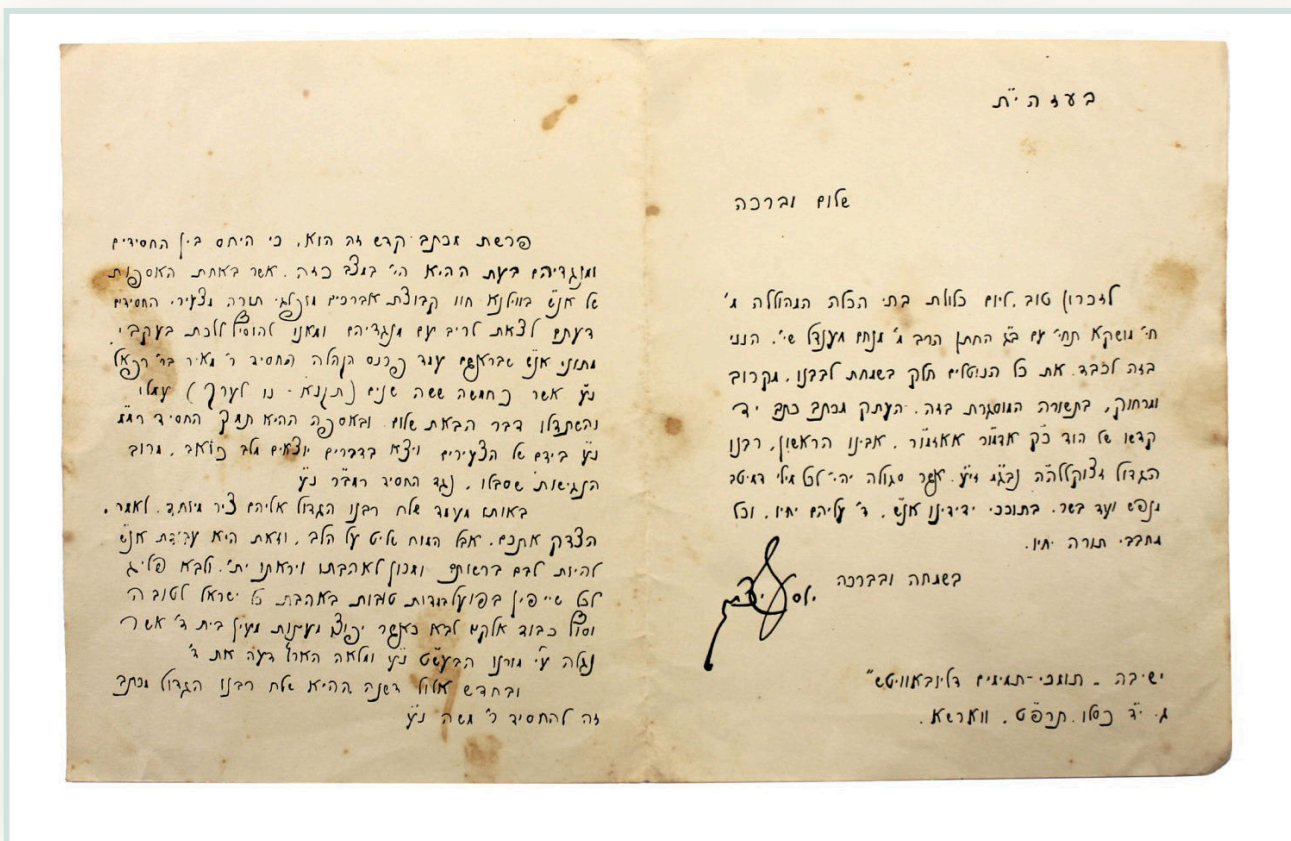 בעזהי"ת
שלום וברכה
לזכרון טוב, ליום כלולת בתי הכלה המהוללה מ'
חי' מושקא תחי' עם ב"ג החתן הרב מ' מנחם מענדל שי'. הנני
בזה לכבד את כל הנוטלים חלק בשמחת לבבנו, מקרוב
ומרחוק, בתשורה המוסגרת בזה. העתק מכתב כתב יד
קדשו של הוד כ"ק אדמו"ר אאזמו"ר, אבינו הראשון, רבנו
הגדול מצוקללה"ה נבג"מ זי"ע. אשר סגולה יהי' לכל מילי דמיטב
מנפש ועד בשר. בתוככי ידידינו אנ"ש, ד' עליהם יחיו, וכל
מחבבי תורה יחיו.
בשמחה ובברכה
יוסף יצחק
ישיבה - תומכי-תמימים דליובאוויטש"
ג. י"ד כסלו. תרפ"ט. ווארשא.
פרשת מכתב קדש זה הוא, כי היחס בין החסידים
ומנגדיהם בעת ההיא הי' במצב כזה. אשר באחת האספות
של אנ"ש בווילנא חוו קבוצת אברכים מופלגי תורה מצעירי החסידים
דעתם לצאת לריב עם מנגדיהם ומאנו להוסיף ללכת בעקבי
מתוני אנ"ש שבראשם עמד פרנס הקהלה החסיד ר' מאיר בר' רפאל
נ"ע אשר כחמשה ששה שנים (תקנ"א - נו לערך) עמלו
והשתדלו דבר הבאת שלום. ובאספה ההיא תמך החסיד רמ"מ
נ"ע בידם של הצעירים ויצא בדברים יוצאים מלב כואב, מרוב
הנגישות שסבלו, נגד החסיד רמב"ר נ"ע
באותו מעמד שלח רבנו הגדול אליהם ציר מיוחד. לאמר.
הצדק אתכם, אבל המוח שליט על הלב, וזאת היא עבודת אנ"ש
להיות לבם ברשותם ומכון לאהבתו ויראתו ית'. ולבא פליג
לכל שייפין בפועל במדות טובות באהבת כל ישראל לטובה
וסוף כבוד אלקים לבא כאשר יפוצו מעינות מעין בית ד' אשר
נגלה ע"י מורנו הבעש"ט נ"ע ומלאה הארץ דעה את ד'
ובחדש אלול דשנה ההיא שלח רבנו הגדול מכתב
זה להחסיד ר' משה נ"ע